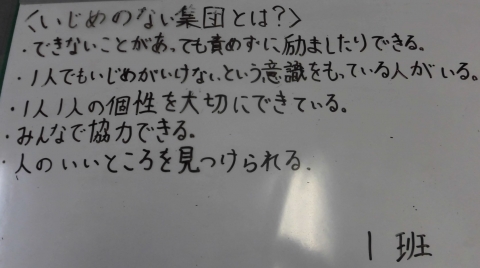 〈いじめのない集団とは？〉
・できないことがあっても責めずに励ましたりできる。
・1人でもいじめがいけない、という意識をもっている人がいる。
・1人1人の個性を大切にできている。
・みんなで協力できる。
・人のいいところを見つけられる.
1 班